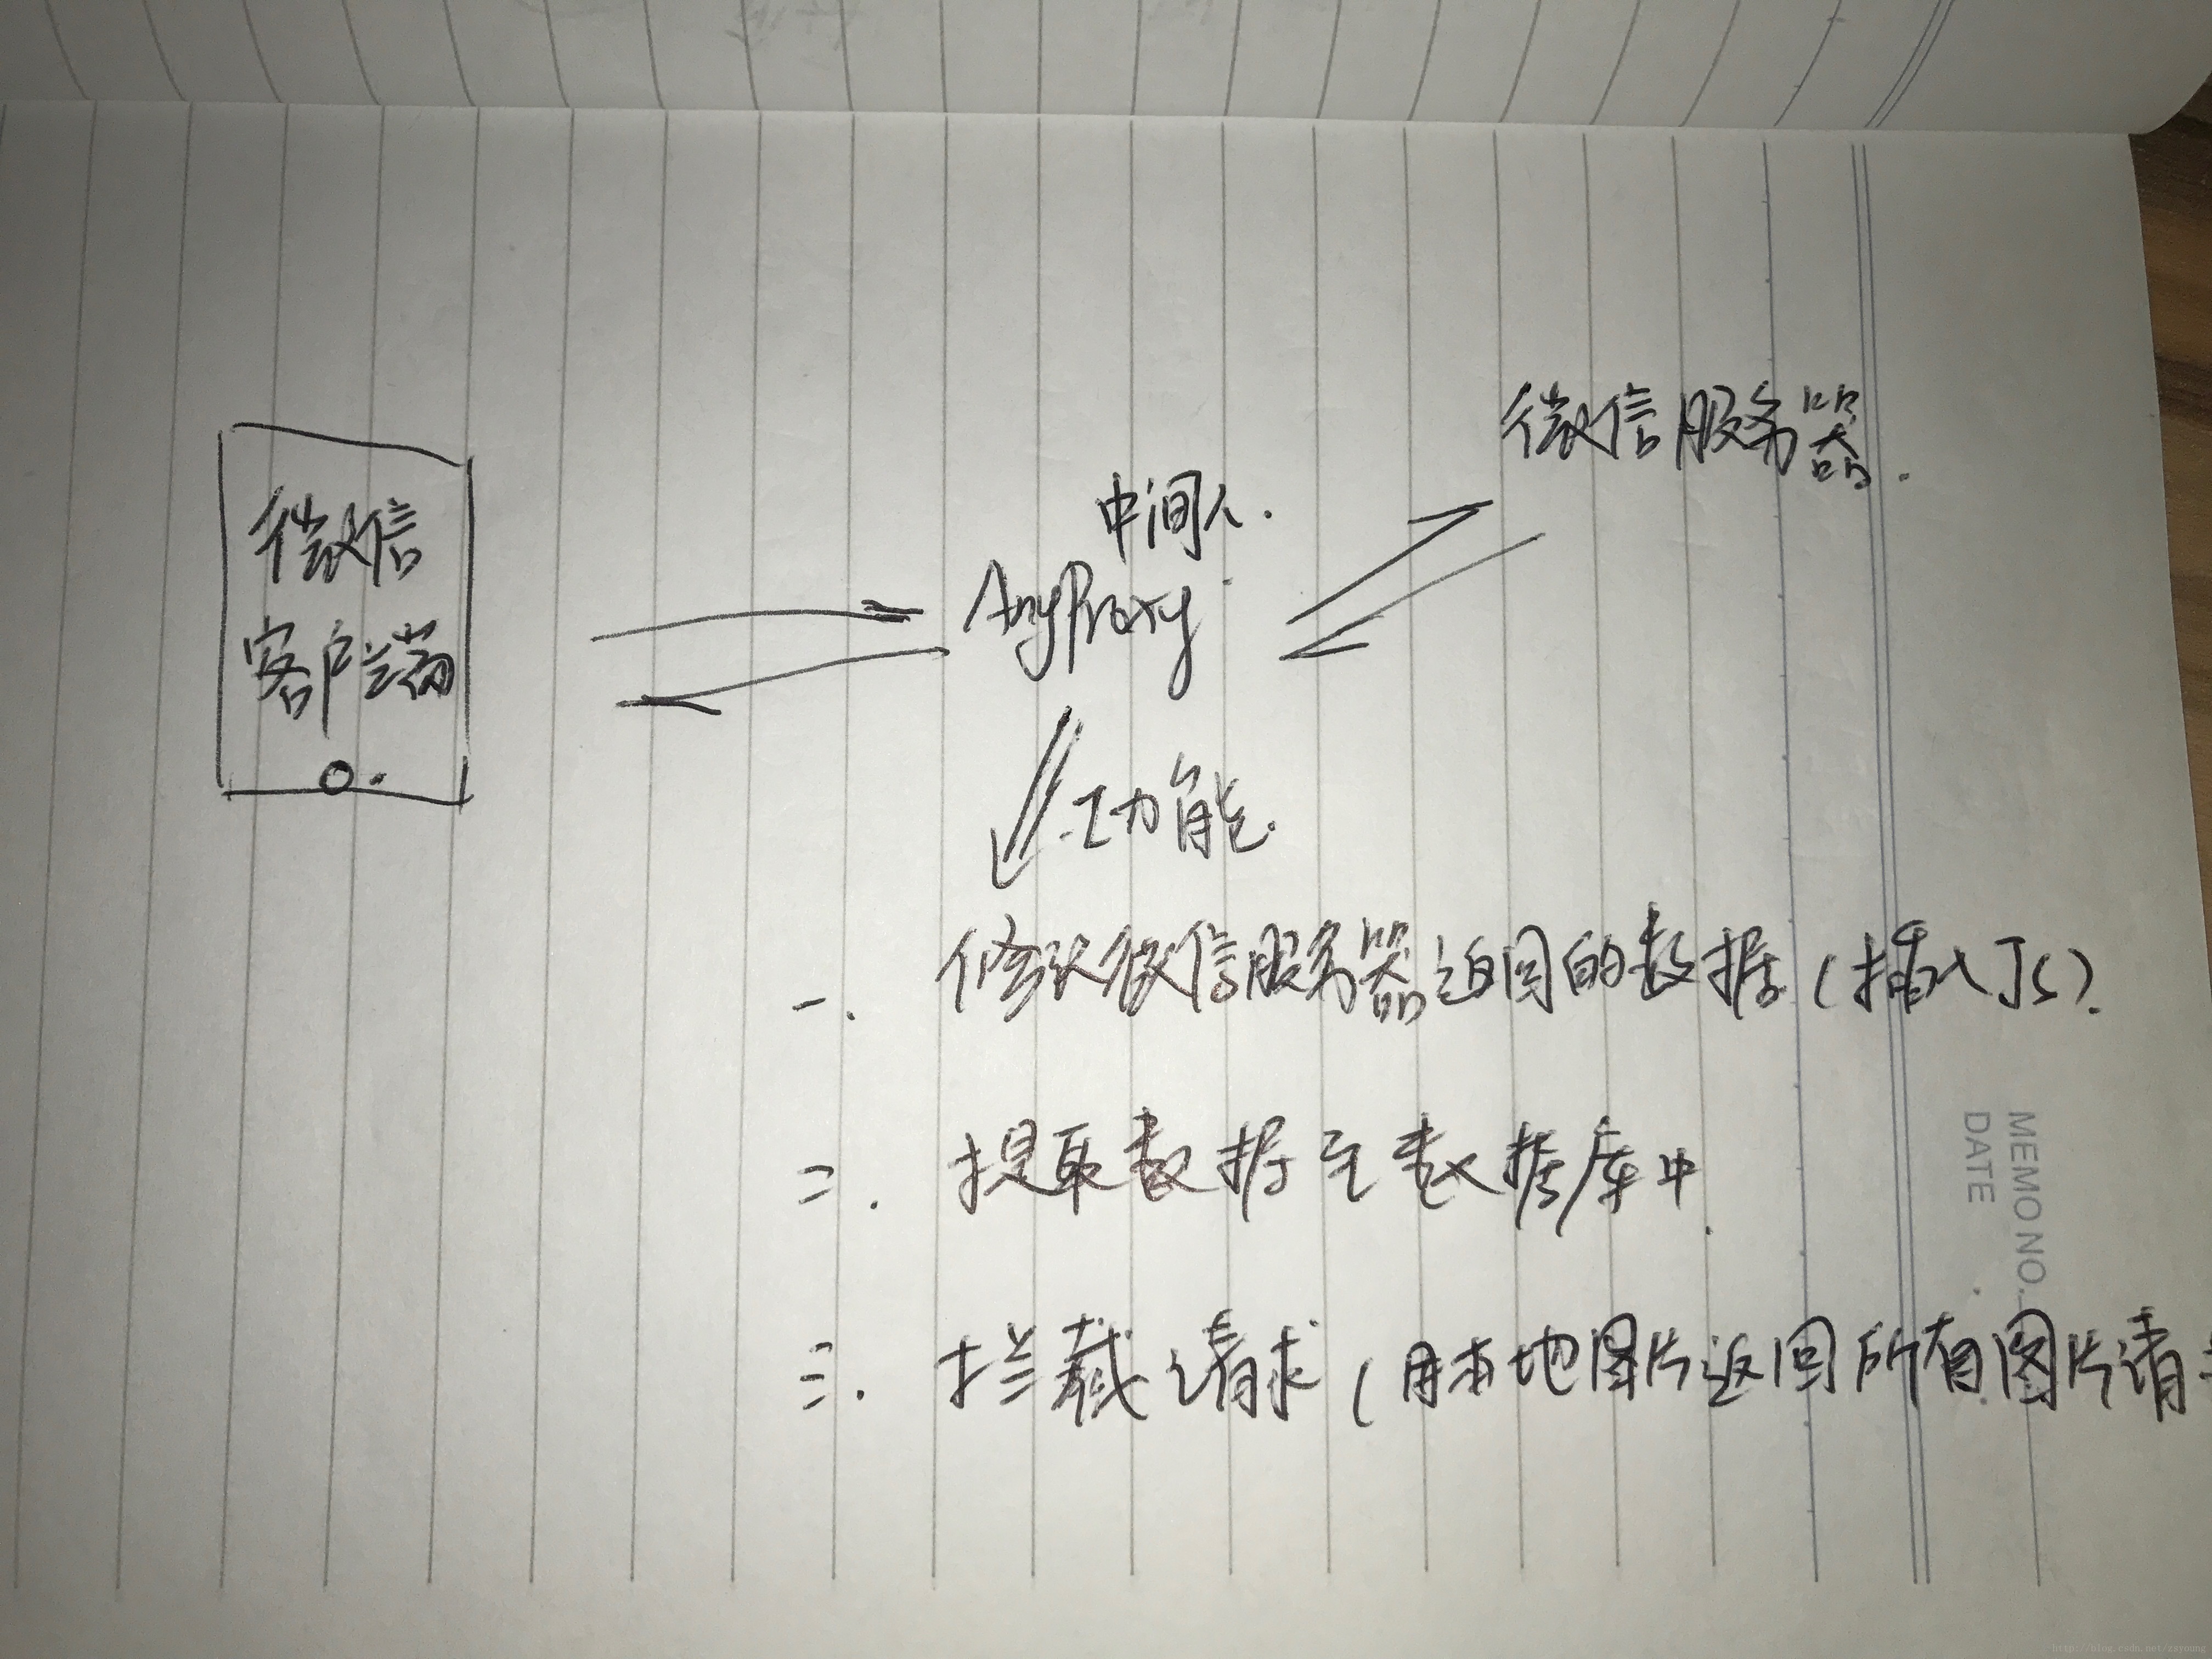 微信服务器.
中间人.
微信
客户端
AnyProxy
功能.
一. 修改微信服务器返回的数据(插入JS).
二. 提取数据至数据库中.
三. 拦截请求(用本地图片返回所有图片请
MEMO NO.
DATE
http://blog.csdn.net/zsyoung